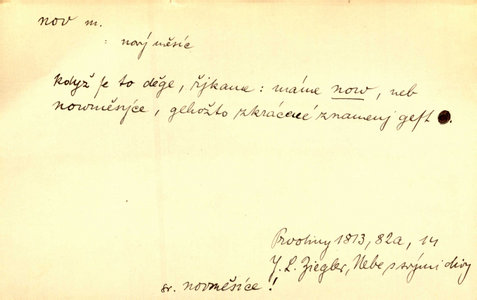 nov m.
: nový měsíc
když se to děge, řjkame: máme now, neb
nowměsýce, gehožto zkrácené znamenj gest ●.
Prvotiny 1813, 82a, 14
J. L. Ziegler, Nebe s svými divy
sr. novměsíce!